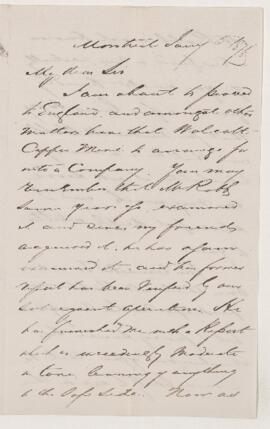 Montreal Jany 5
My dear Sir
I am about to proceed
to England and amongst other
matters have that
Copper Mine to arrange for
into a Company. You may
remember that Mr Robb
some years ago examined
it and since my friends
acquired it, he has again
examined it, and his former
report has been verified by our
subsequent operations. He
has furnished me with a Report
which is exceedingly moderate
in tone leaning if anything
to the safe side. Now as